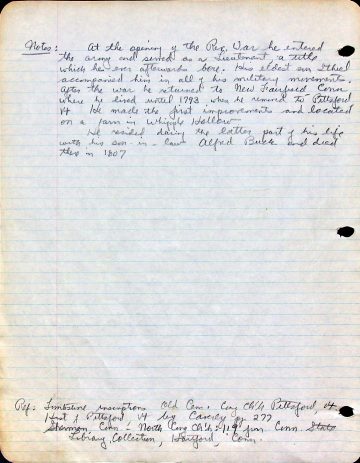 Notes: At the opening of the Rev. War he entered
the army and served as a Lieutenant, a title
which he ever afterwards bore. His eldest son Ithiel
accompanied him in all of his military movements.
After the war he returned to New Fairfield Conn
where he lived until 1793 when he removed to Pittsford
Vt. He made the first improvements and located
on a farm in Whipple Hollow
He resided during the latter part of his life
with his son-in-law Alfred Buck and died
there in 1807
Ref: Tombstone inscriptions Old Cem. Cong Ch'h Pittsford, Vt
Hist of Pittsford Vt by Caverly pg 277
Sherman, Conn - North Cong Ch'h: 119 from Conn. State
Library Collection, Hartford, Conn.